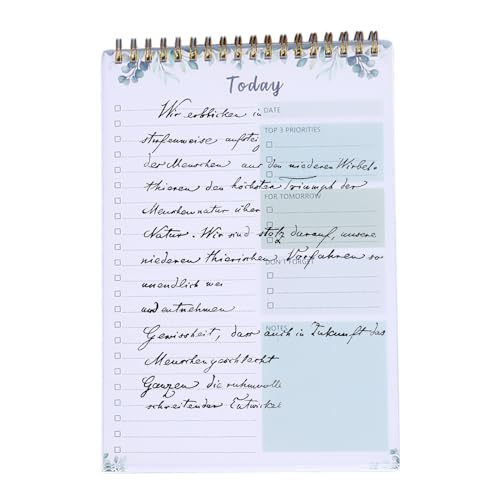 Today
Wir erblicken in
DATE
stufenweise aufsteig
TOP 3 PRIORITIES
der Menschen aus den niederen Wirbel-
thieren den höchsten Triumph der
Menschennatur über
FOR TOMORROW
Natur. Wir sind stolz darauf, unsere
niederen thierischen Vorfahren so
DON'T FORGET
unendlich wei
und entnehmen
Gewissheit, dass auch in Zukunft das
NOTES
Menschengeschlecht
Ganzen die ruhmvolle
schreitender Entwickel